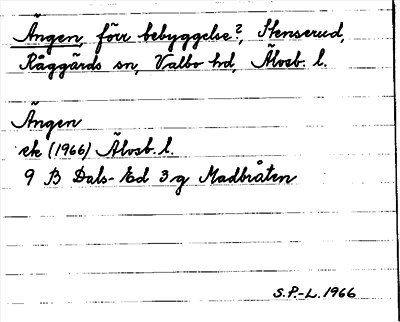 Ängen, förr bebyggelse?, Stenserud,
Råggärds sn, Valbo hd, Älvsb. l.
Ängen
ek (1966) Älvsb. l.
9 B Dals-Ed 3g Madbråten
S.P.-L. 1966